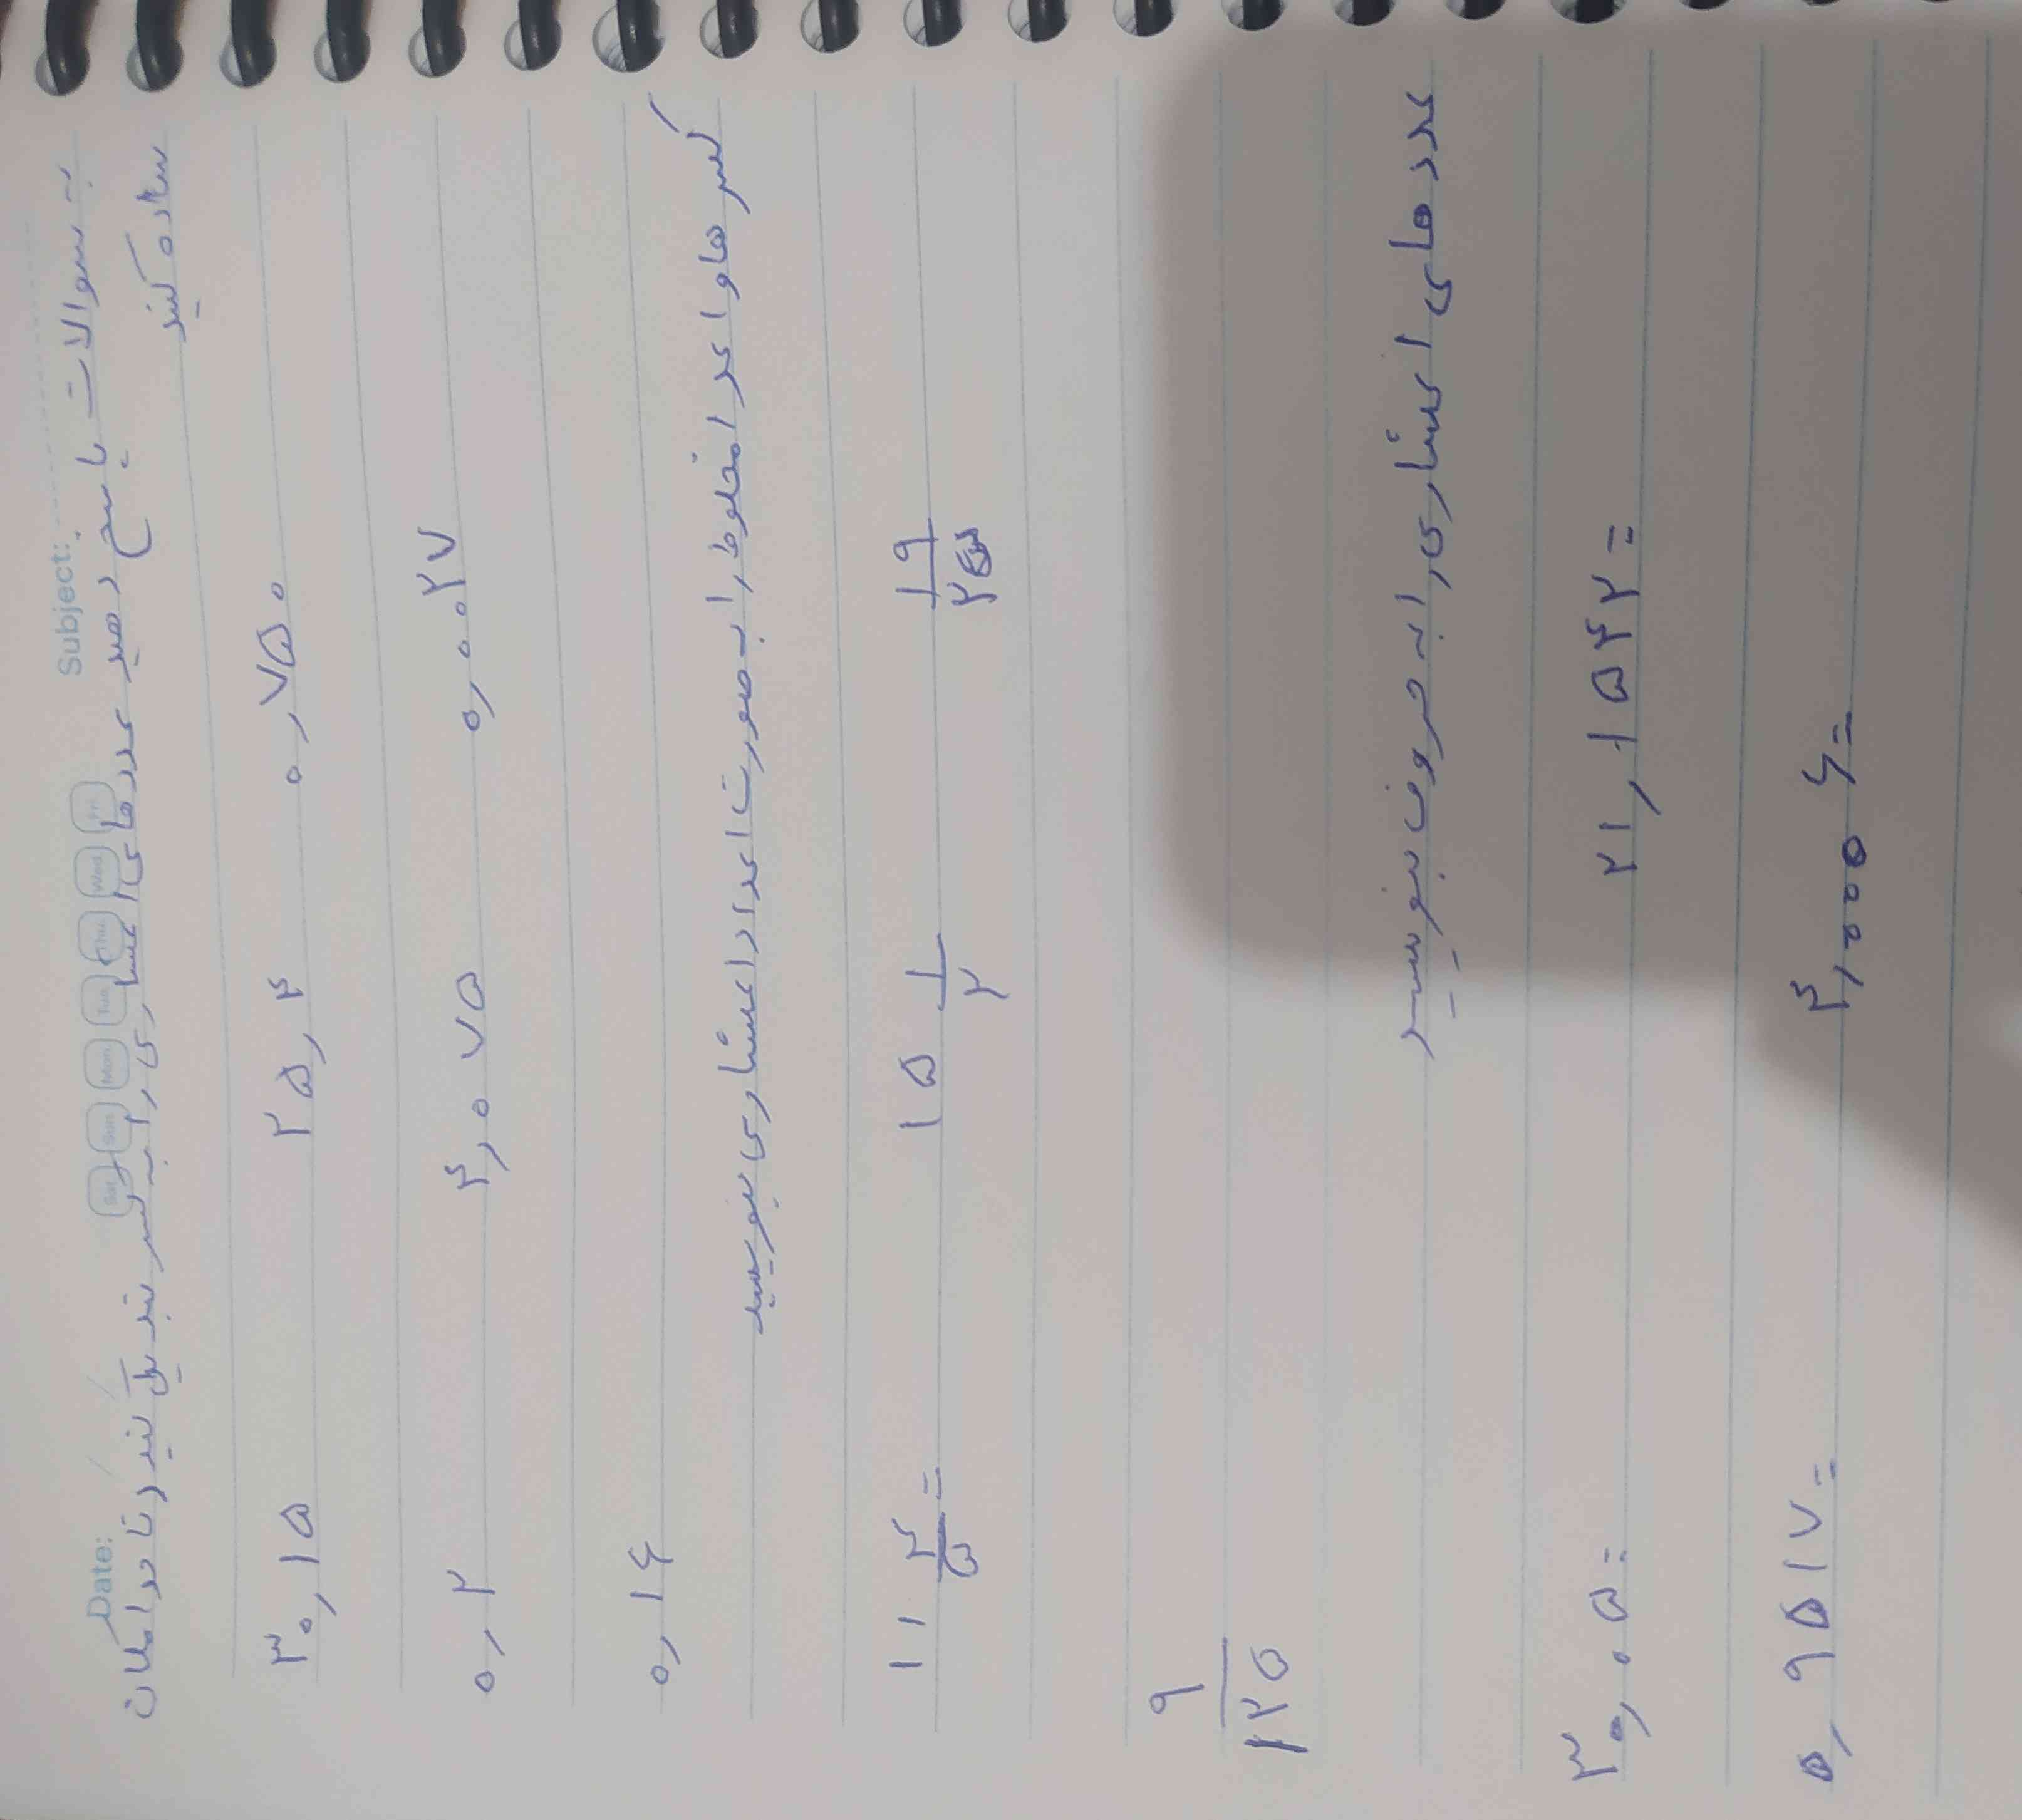 Date: Subject:
Sat Sun Mon Tue Thu Wed Fri
به سوالات پاسخ دهید عددهای اعشاری را به کسر تبدیل کنید و تا حد امکان
ساده کنید
۳۰,۱۵ ۲۵,۴ ۰,۷۵۰
۰,۲ ۴,۰۷۵ ۰,۰۰۲۷
۰,۱۶
کسر ها و اعداد مخلوط را به صورت اعداد اعشاری بنویسید
۱۱ ۴/۵ = ۱۵ ۱/۲ ۱۹/۲۵
۹/۱۲۵
عدد های اعشاری را به حروف بنویسید
۳۰,۰۵= ۲۱,۱۵۴۲=
۵,۹۵۱۷= ۴,۰۰۰۶=